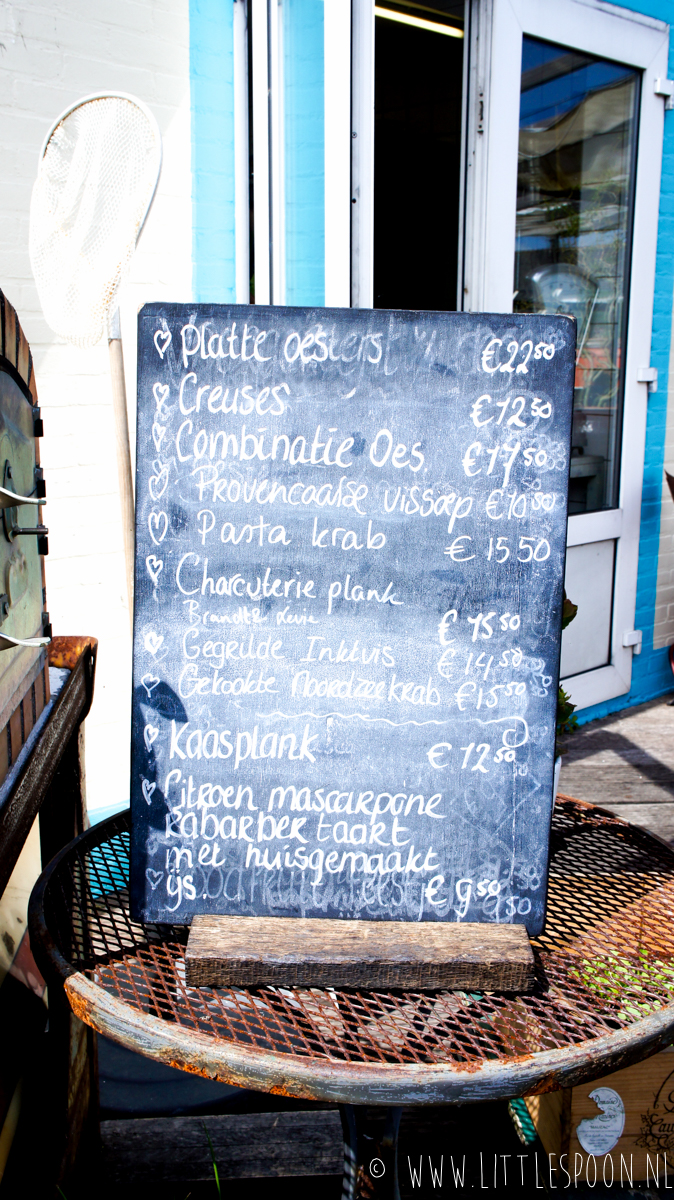 Platte oesters €22⁵⁰
Creuses €12⁵⁰
Combinatie Oes. €17⁵⁰
Provencaalse vissoep €10⁵⁰
Pasta krab € 15 50
Charcuterie plank
Brandt & Levie € 15⁵⁰
Gegrilde Inktvis € 14,⁵⁰
Gekookte Noordzeekrab €15⁵⁰
Kaasplank € 12⁵⁰
Citroen mascarpone
rabarber taart
met huisgemaakt
ijs. € 9⁵⁰
© WWW.LITTLESPOON.NL